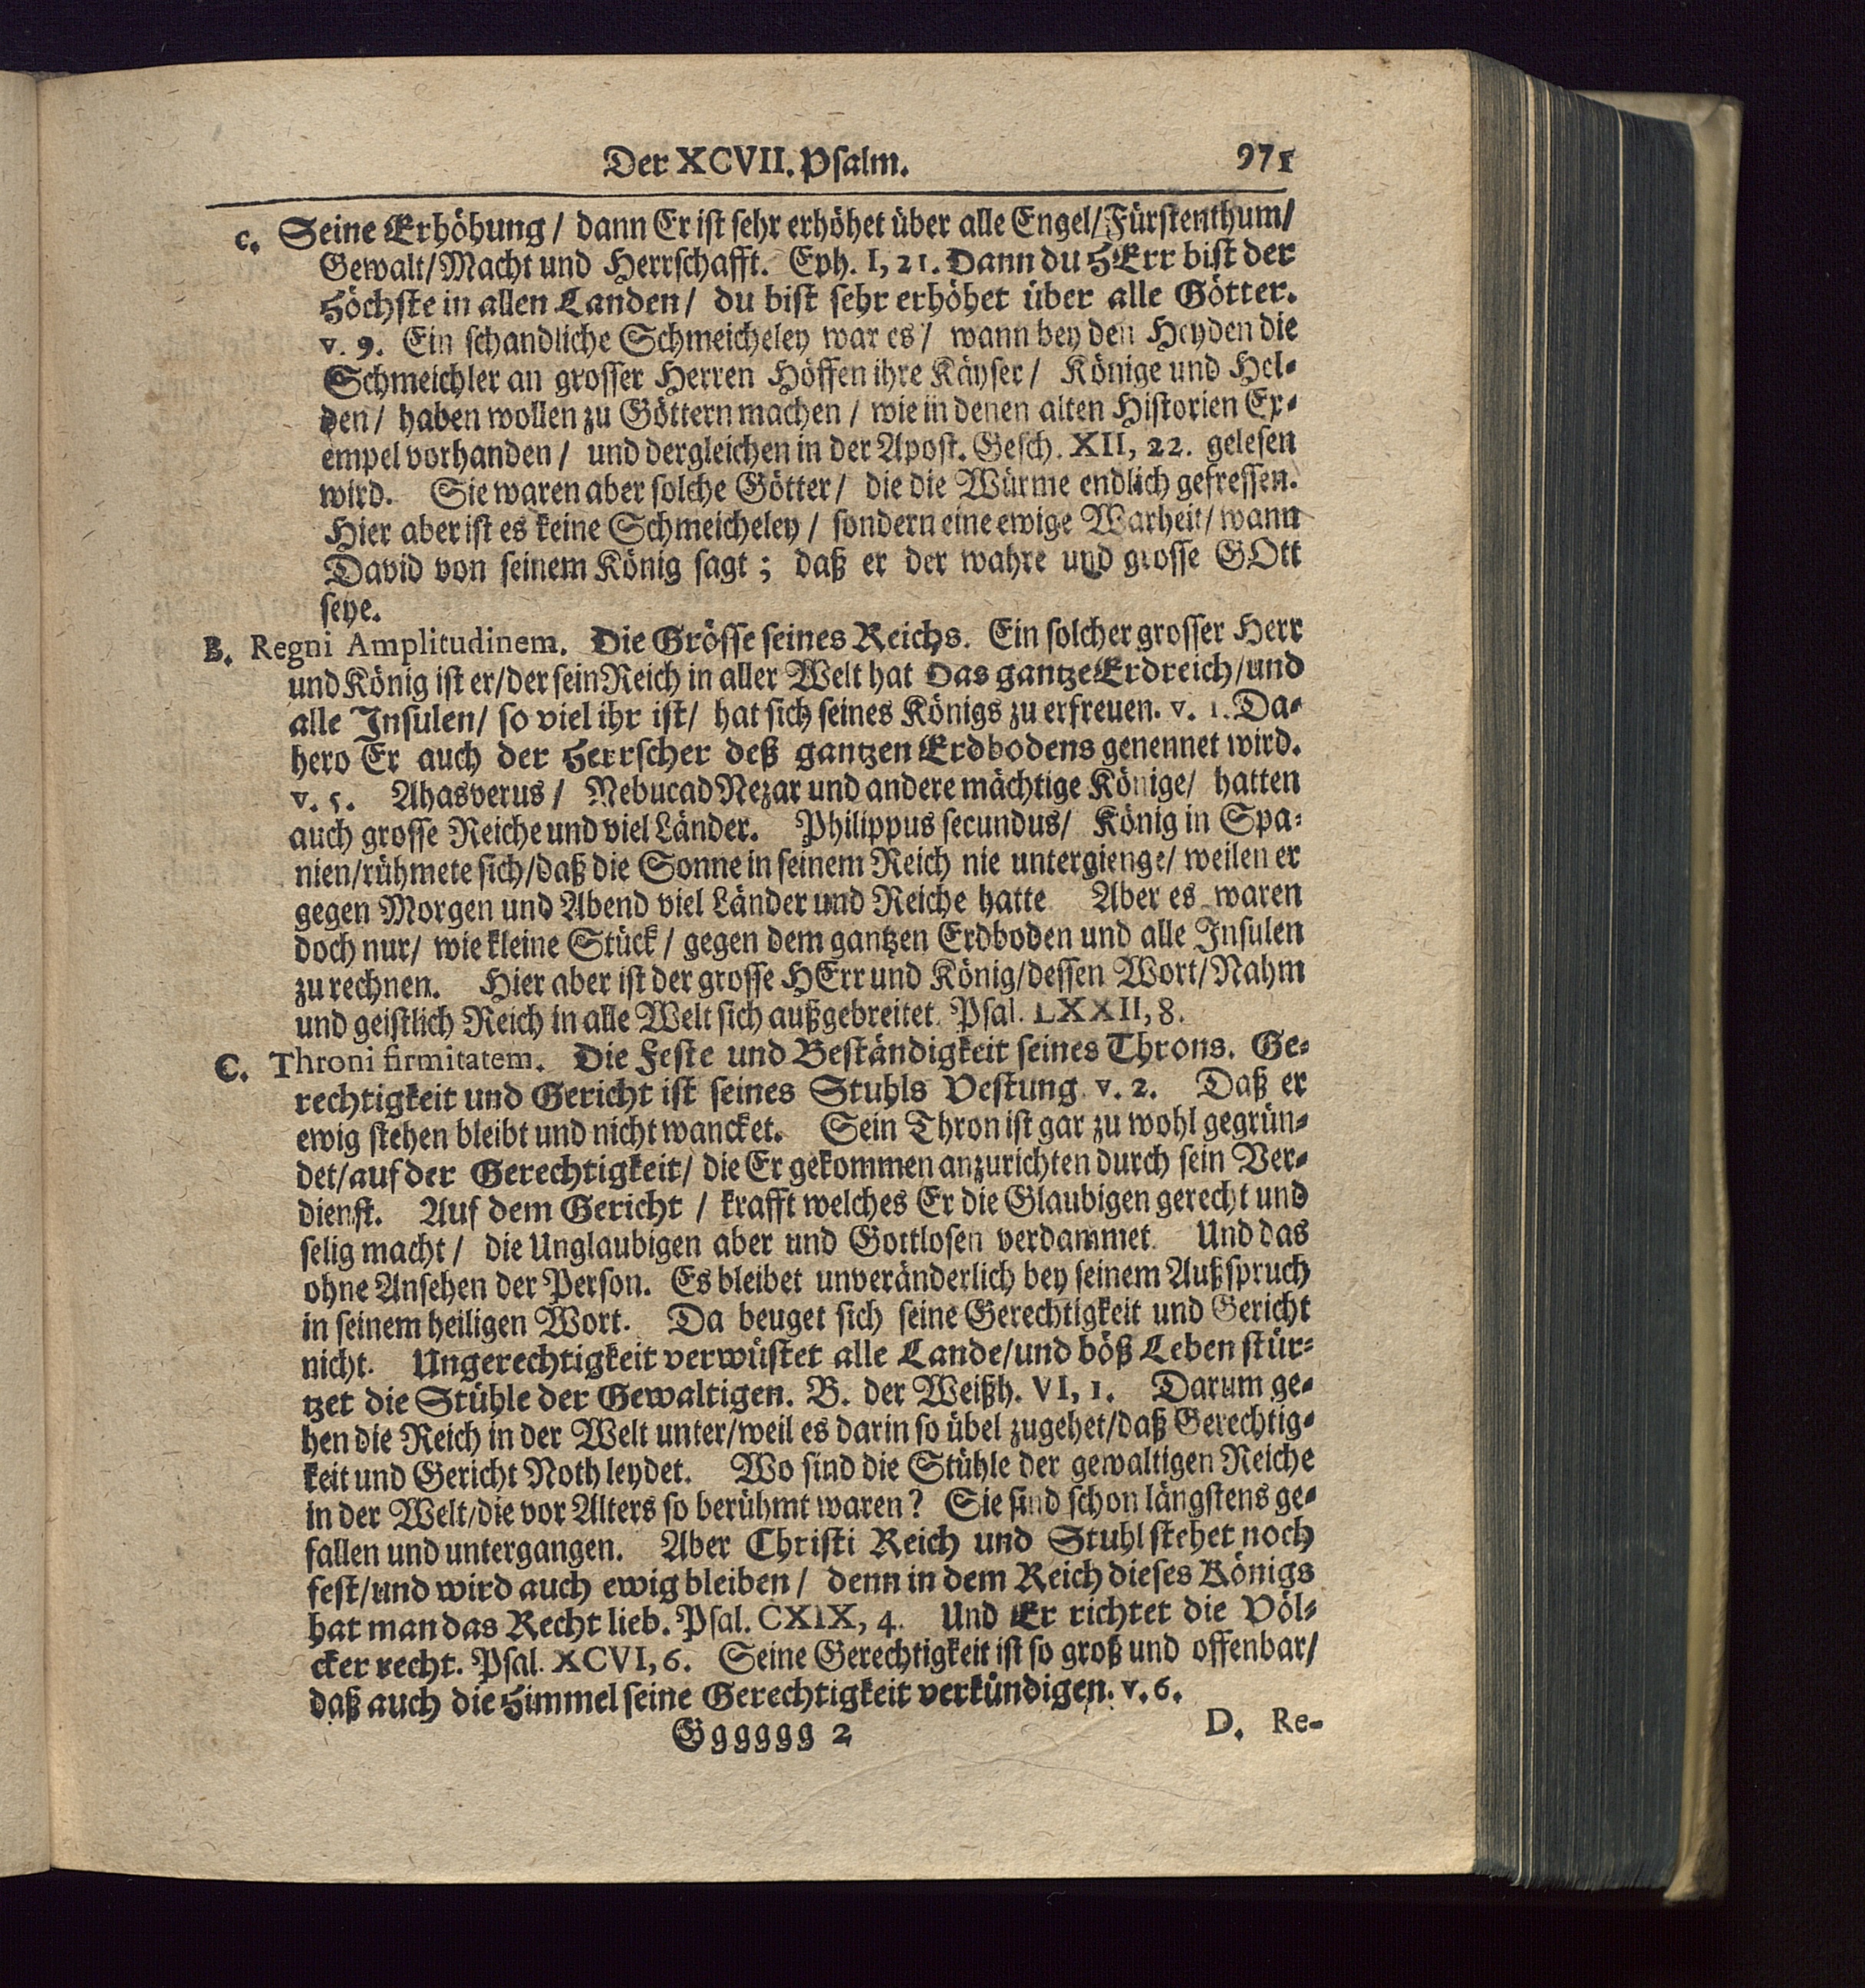 Der XCVII. Psalm. 971
c. Seine Erhöhung / dann Er ist sehr erhöhet über alle Engel/Fürstenthum/
Gewalt/Macht und Herrschafft. Eph. I, 21. Dann du HErr bist der
Höchste in allen Landen / du bist sehr erhöhet über alle Götter.
v. 9. Ein schandliche Schmeicheley war es / wann bey den Heyden die
Schmeichler an grosser Herren Höffen ihre Käyser / Könige und Hel-
den / haben wollen zu Göttern machen / wie in denen alten Historien Ex-
empel vorhanden / und dergleichen in der Apost. Gesch. XII, 22. gelesen
wird. Sie waren aber solche Götter / die die Würme endlich gefressen.
Hier aber ist es keine Schmeicheley / sondern eine ewige Warheit / wann
David von seinem König sagt ; daß er der wahre und grosse GOtt
seye.
B. Regni Amplitudinem. Die Grösse seines Reichs. Ein solcher grosser Herr
und König ist er/der sein Reich in aller Welt hat Das gantze Erdreich/und
alle Insulen / so viel ihr ist / hat sich seines Königs zu erfreuen. v. 1. Da-
hero Er auch der Herrscher deß gantzen Erdbodens genennet wird.
v. 5. Ahasverus / NebucadNezar und andere mächtige Könige / hatten
auch grosse Reiche und viel Länder. Philippus secundus / König in Spa-
nien/rühmete sich/daß die Sonne in seinem Reich nie untergienge / weilen er
gegen Morgen und Abend viel Länder und Reiche hatte Aber es waren
doch nur / wie kleine Stück / gegen dem gantzen Erdboden und alle Insulen
zu rechnen. Hier aber ist der grosse HErr und König/dessen Wort/Nahm
und geistlich Reich in alle Welt sich außgebreitet. Psal. LXXII, 8.
C. Throni firmitatem. Die Feste und Beständigkeit seines Throns. Ge-
rechtigkeit und Gericht ist seines Stuhls Vestung. v. 2. Daß er
ewig stehen bleibt und nicht wancket. Sein Thron ist gar zu wohl gegrün-
det/auf der Gerechtigkeit / die Er gekommen anzurichten durch sein Ver-
dienst. Auf dem Gericht / krafft welches Er die Glaubigen gerecht und
selig macht / die Unglaubigen aber und Gottlosen verdammet. Und das
ohne Ansehen der Person. Es bleibet unveränderlich bey seinem Außspruch
in seinem heiligen Wort. Da beuget sich seine Gerechtigkeit und Gericht
nicht. Ungerechtigkeit verwüstet alle Lande/und böß Leben stür-
tzet die Stühle der Gewaltigen. B. der Weißh. VI, 1. Darum ge-
hen die Reich in der Welt unter/weil es darin so übel zugehet/daß Gerechtig-
keit und Gericht Noth leydet. Wo sind die Stühle der gewaltigen Reiche
in der Welt/die vor Alters so berühmt waren? Sie sind schon längstens ge-
fallen und untergangen. Aber Christi Reich und Stuhl stehet noch
fest/und wird auch ewig bleiben / denn in dem Reich dieses Königs
hat man das Recht lieb. Psal. CXIX, 4. Und Er richtet die Völ-
cker recht. Psal. XCVI, 6. Seine Gerechtigkeit ist so groß und offenbar/
daß auch die Himmel seine Gerechtigkeit verkündigen. v. 6.
Gggggg 2 D. Re-